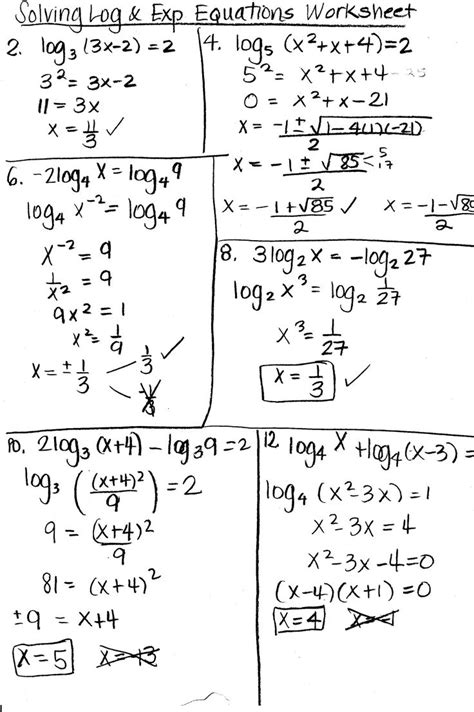 Solving Log & Exp Equations Worksheet
2. log₃(3x-2) = 2
3² = 3x-2
11 = 3x
x = 11/3 ✓
4. log₅(x²+x+4)=2
5² = x²+x+4 - 25
0 = x²+x-21
x = -1±√1-4(1)(-21) / 2
x = -1 ± √85 / 2 < 5 17
x = -1+√85 / 2 ✓ x = -1-√85 / 2
6. -2log₄x = log₄9
log₄x⁻² = log₄9
x⁻² = 9
1/x² = 9
9x² = 1
x² = 1/9
x = ±1/3 1/3 ✓
-1/3
8. 3log₂x = -log₂27
log₂x³ = log₂ 1/27
x³ = 1/27
x = 1/3 ✓
10. 2log₃(x+4) - log₃9 = 2
log₃((x+4)²/9) = 2
9 = (x+4)²/9
81 = (x+4)²
±9 = x+4
x=5 x=-13
12 log₄x + log₄(x-3) =
log₄(x²-3x) = 1
x²-3x = 4
x²-3x-4=0
(x-4)(x+1) = 0
x=4 x=-1